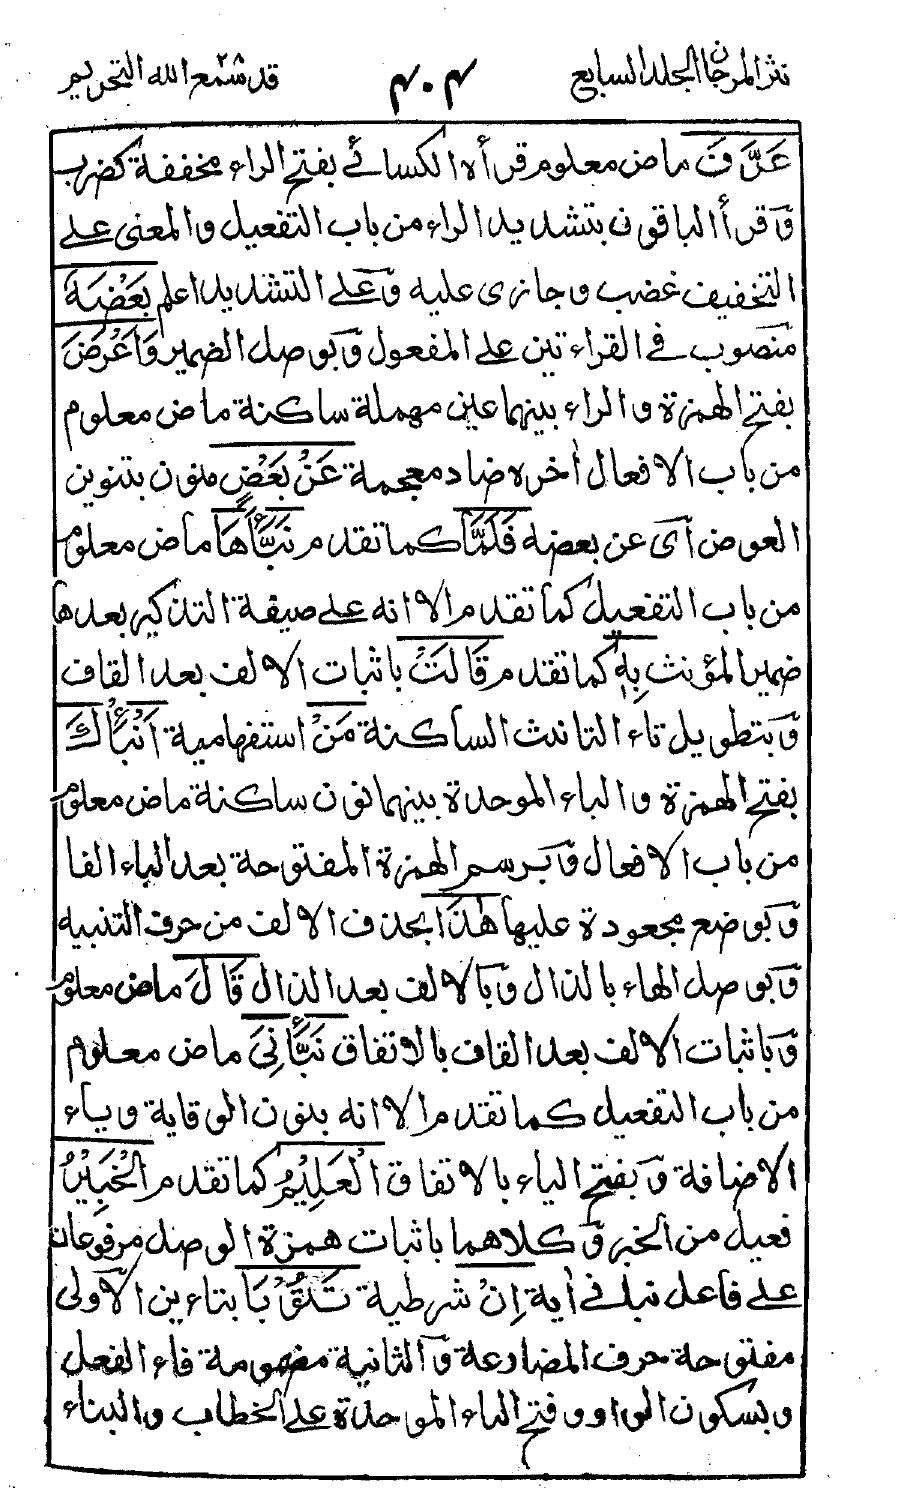 نثر المرجان المجلد السابع ٤٠٤ قد سمع الله التحريم
عَرَّفَ ماض معلوم قرأه الكسائي بفتح الراء مخففة كضرب
وقرأ الباقون بتشديد الراء من باب التفعيل والمعنى على
التخفيف غضب وجازى عليه وعلى التشديد اعلم بَعْضَهٗ
منصوب في القراءتين على المفعول وبوصل الضمير وَاَعْرَضَ
بفتح الهمزة والراء بينهما عين مهملة ساكنة ماض معلوم
من باب الافعال اخره ضاد معجمة عَنْۢ بَعْضٍ منون بتنوين
العوض اى عن بعضه فَلَمَّا كما تقدم نَبَّأَهَا ماض معلوم
من باب التفعيل كما تقدم الا انه على صيغة التذكير بعدها
ضمير المؤنث بِهٖ كما تقدم قَالَتْ باثبات الالف بعد القاف
وبتطويل تاء التانيث الساكنة مَنْ استفهامية اَنْۢبَأَكَ
بفتح الهمزة والباء الموحدة بينهما نون ساكنة ماض معلوم
من باب الافعال وبرسم الهمزة المفتوحة بعد الباء الفا
وبوضع مجعودة عليها هٰذَا بحذف الالف من حرف التنبيه
وبوصل الهاء بالذال وبالالف بعد الذال قَالَ ماض معلوم
وباثبات الالف بعد القاف بالاتفاق نَبَّأَنِيَ ماض معلوم
من باب التفعيل كما تقدم الا انه بنون الوقاية وياء
الاضافة وبفتح الياء بالاتفاق الْعَلِيْمُ كما تقدم الْخَبِيْرُ
فعيل من الخبر وكلاهما باثبات همزة الوصل مرفوعان
على فاعل نبأني اية اِنْ شرطية تَتُوْبَا بتاءين الاولى
مفتوحة حرف المضارعة والثانية مضمومة فاء الفعل
وبسكون الواو وفتح الباء الموحدة على الخطاب والبناء